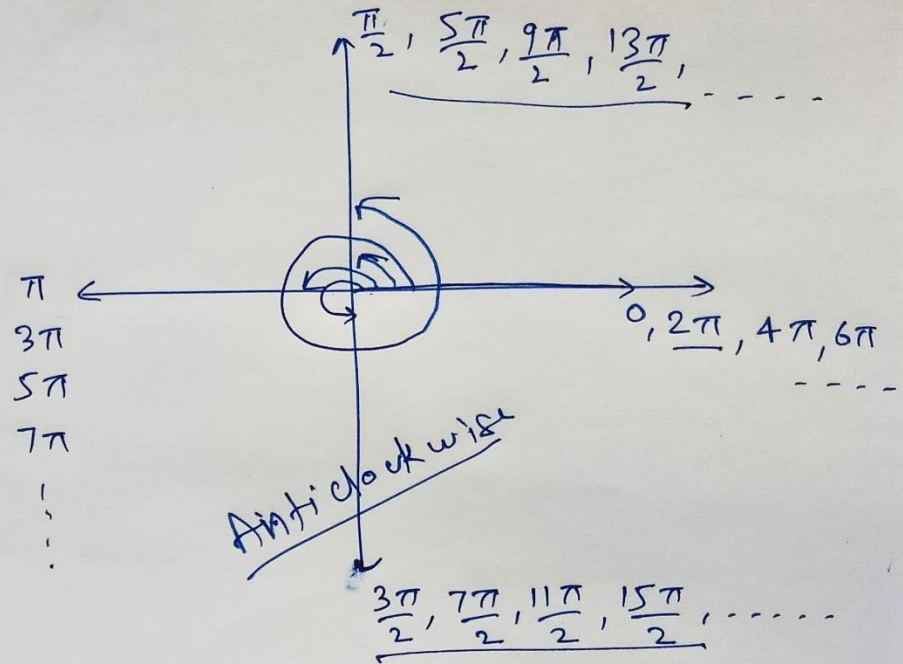 π/2, 5π/2, 9π/2, 13π/2, - - - -
π
3π
5π
7π
0, 2π, 4π, 6π
- - - -
Anticlockwise
3π/2, 7π/2, 11π/2, 15π/2, ......